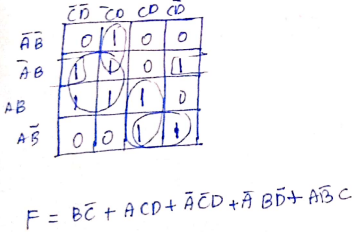 C̅D̅ C̅D CD CD̅
A̅B̅ 0 1 0 0
A̅B 1 1 0 1
AB 1 1 1 0
AB̅ 0 0 1 1
F = BC̅ + ACD + A̅C̅D + A̅BD̅ + AB̅C